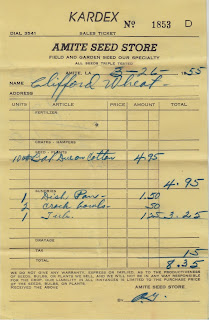 KARDEX
Nº 1853 D
DIAL 3541 SALES TICKET
AMITE SEED STORE
FIELD AND GARDEN SEED OUR SPECIALTY
ALL SEEDS TRIPLE TESTED
AMITE, LA. 3-26-1955
NAME Clifford Wheat
ADDRESS
UNITS ARTICLE PRICE AMOUNT TOTAL
FERTILIZER
SEED - PLANTS
Cotton 4.95
4.95
SUNDRIES
1 Dish Pan 1.50
2 Crock bowls .50
1 1.25 3.25
DRAYAGE
TAX 15
TOTAL 8.35
WE DO NOT GIVE ANY WARRANTY, EXPRESS OR IMPLIED, AS TO THE PRODUCTIVENESS
OF SEEDS, BULBS, OR PLANTS WE SELL, AND WE WILL NOT BE IN ANY WAY RESPONSIBLE
FOR THE CROP. OUR LIABILITY IN ALL INSTANCES IS LIMITED TO THE PURCHASE PRICE
OF THE SEED, BULBS, OR PLANTS.
RECEIVED THE ABOVE AMITE SEED STORE
BY